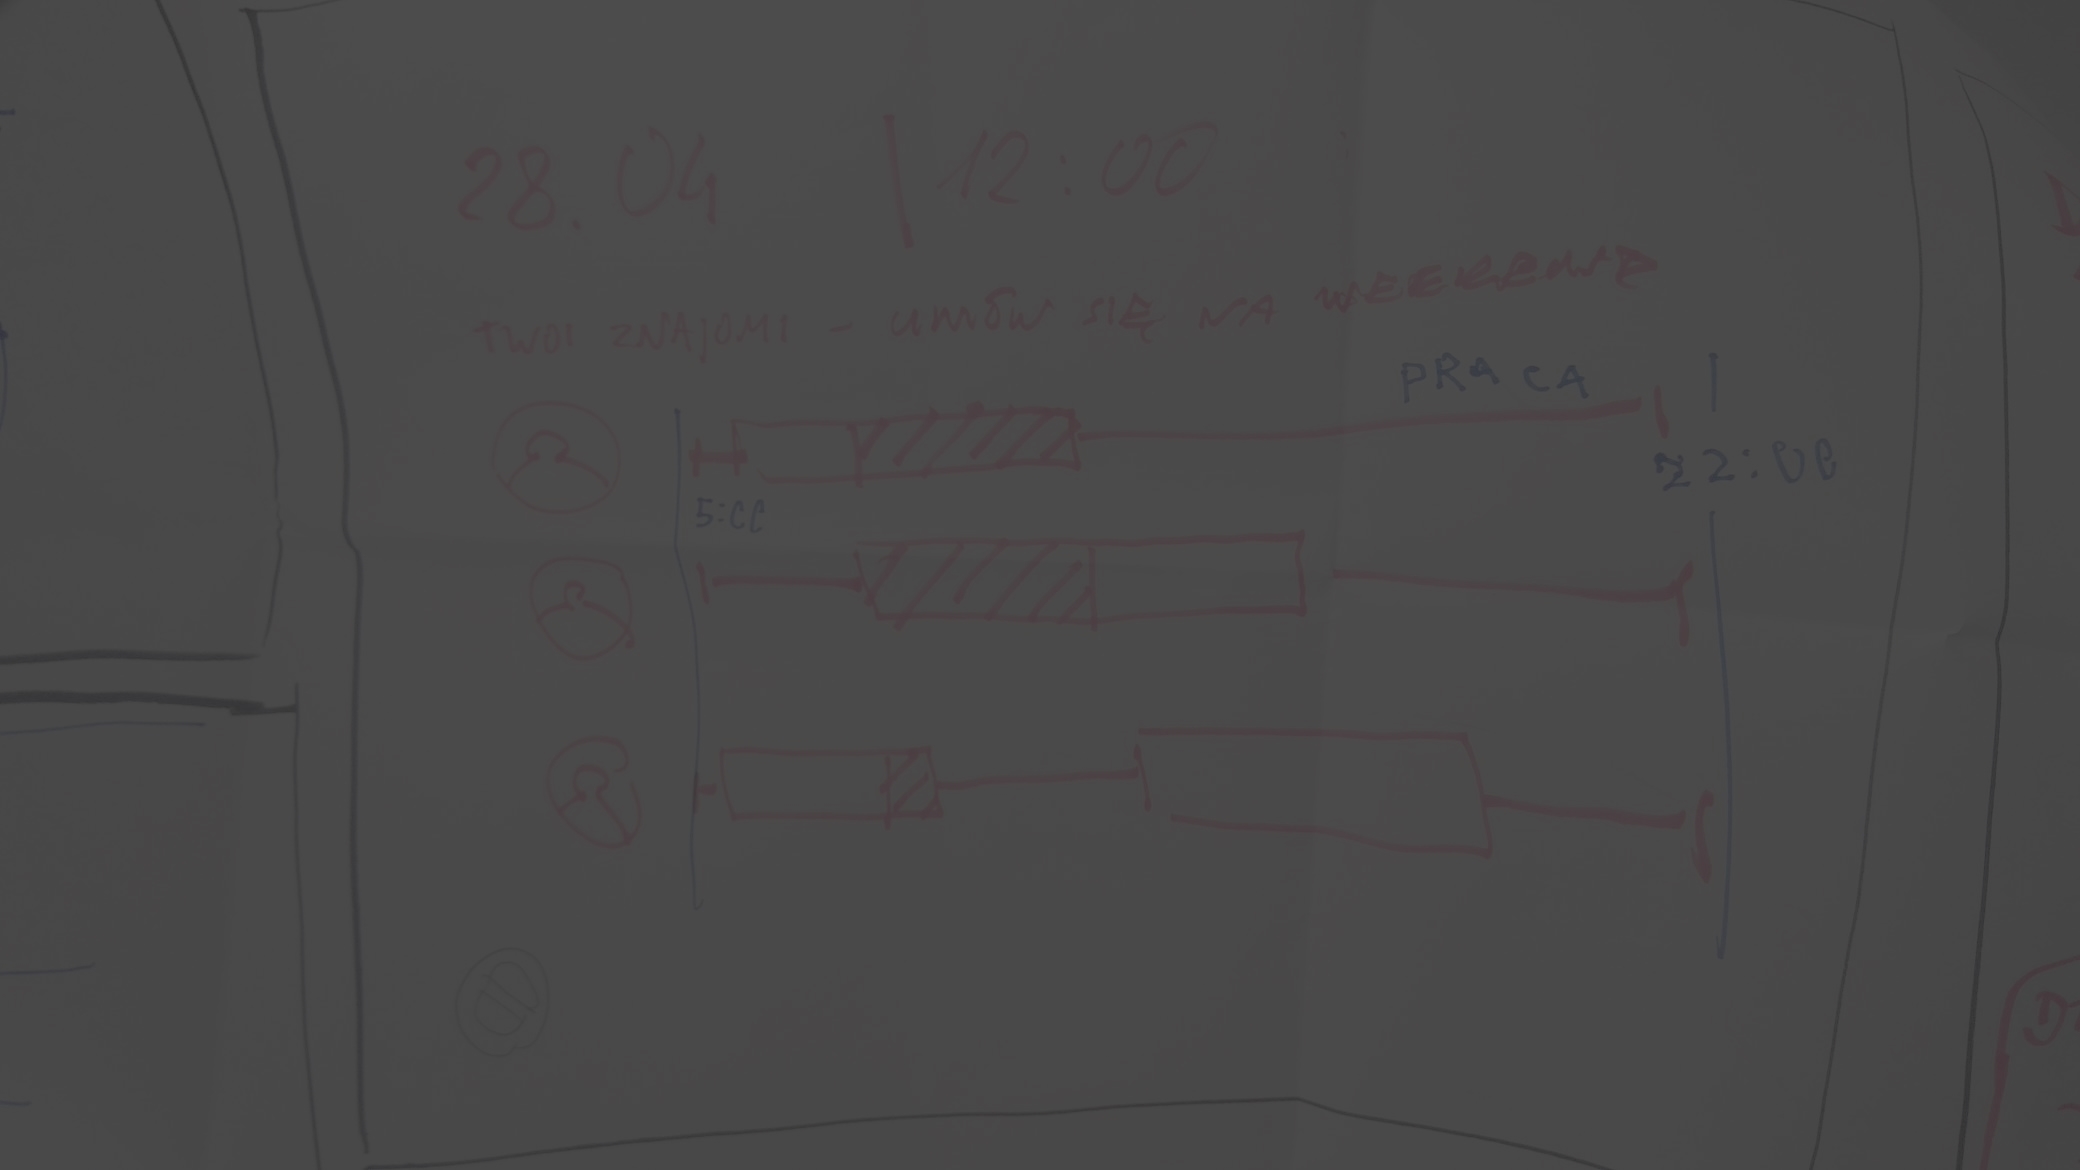 28.04 | 12:00
TWOI ZNAJOMI - UMÓW SIĘ NA WEEKEND
PRACA
22:00
5:00